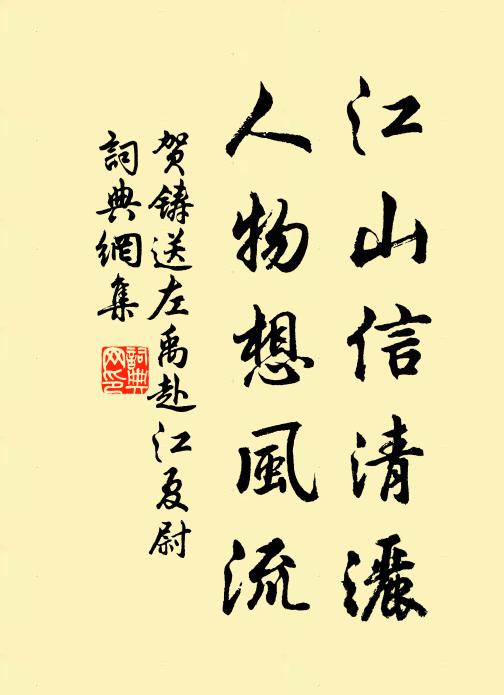 江山信清灑
人物想風流
贺鋳送左禹赴江夏尉
詞典網集
詞典網印